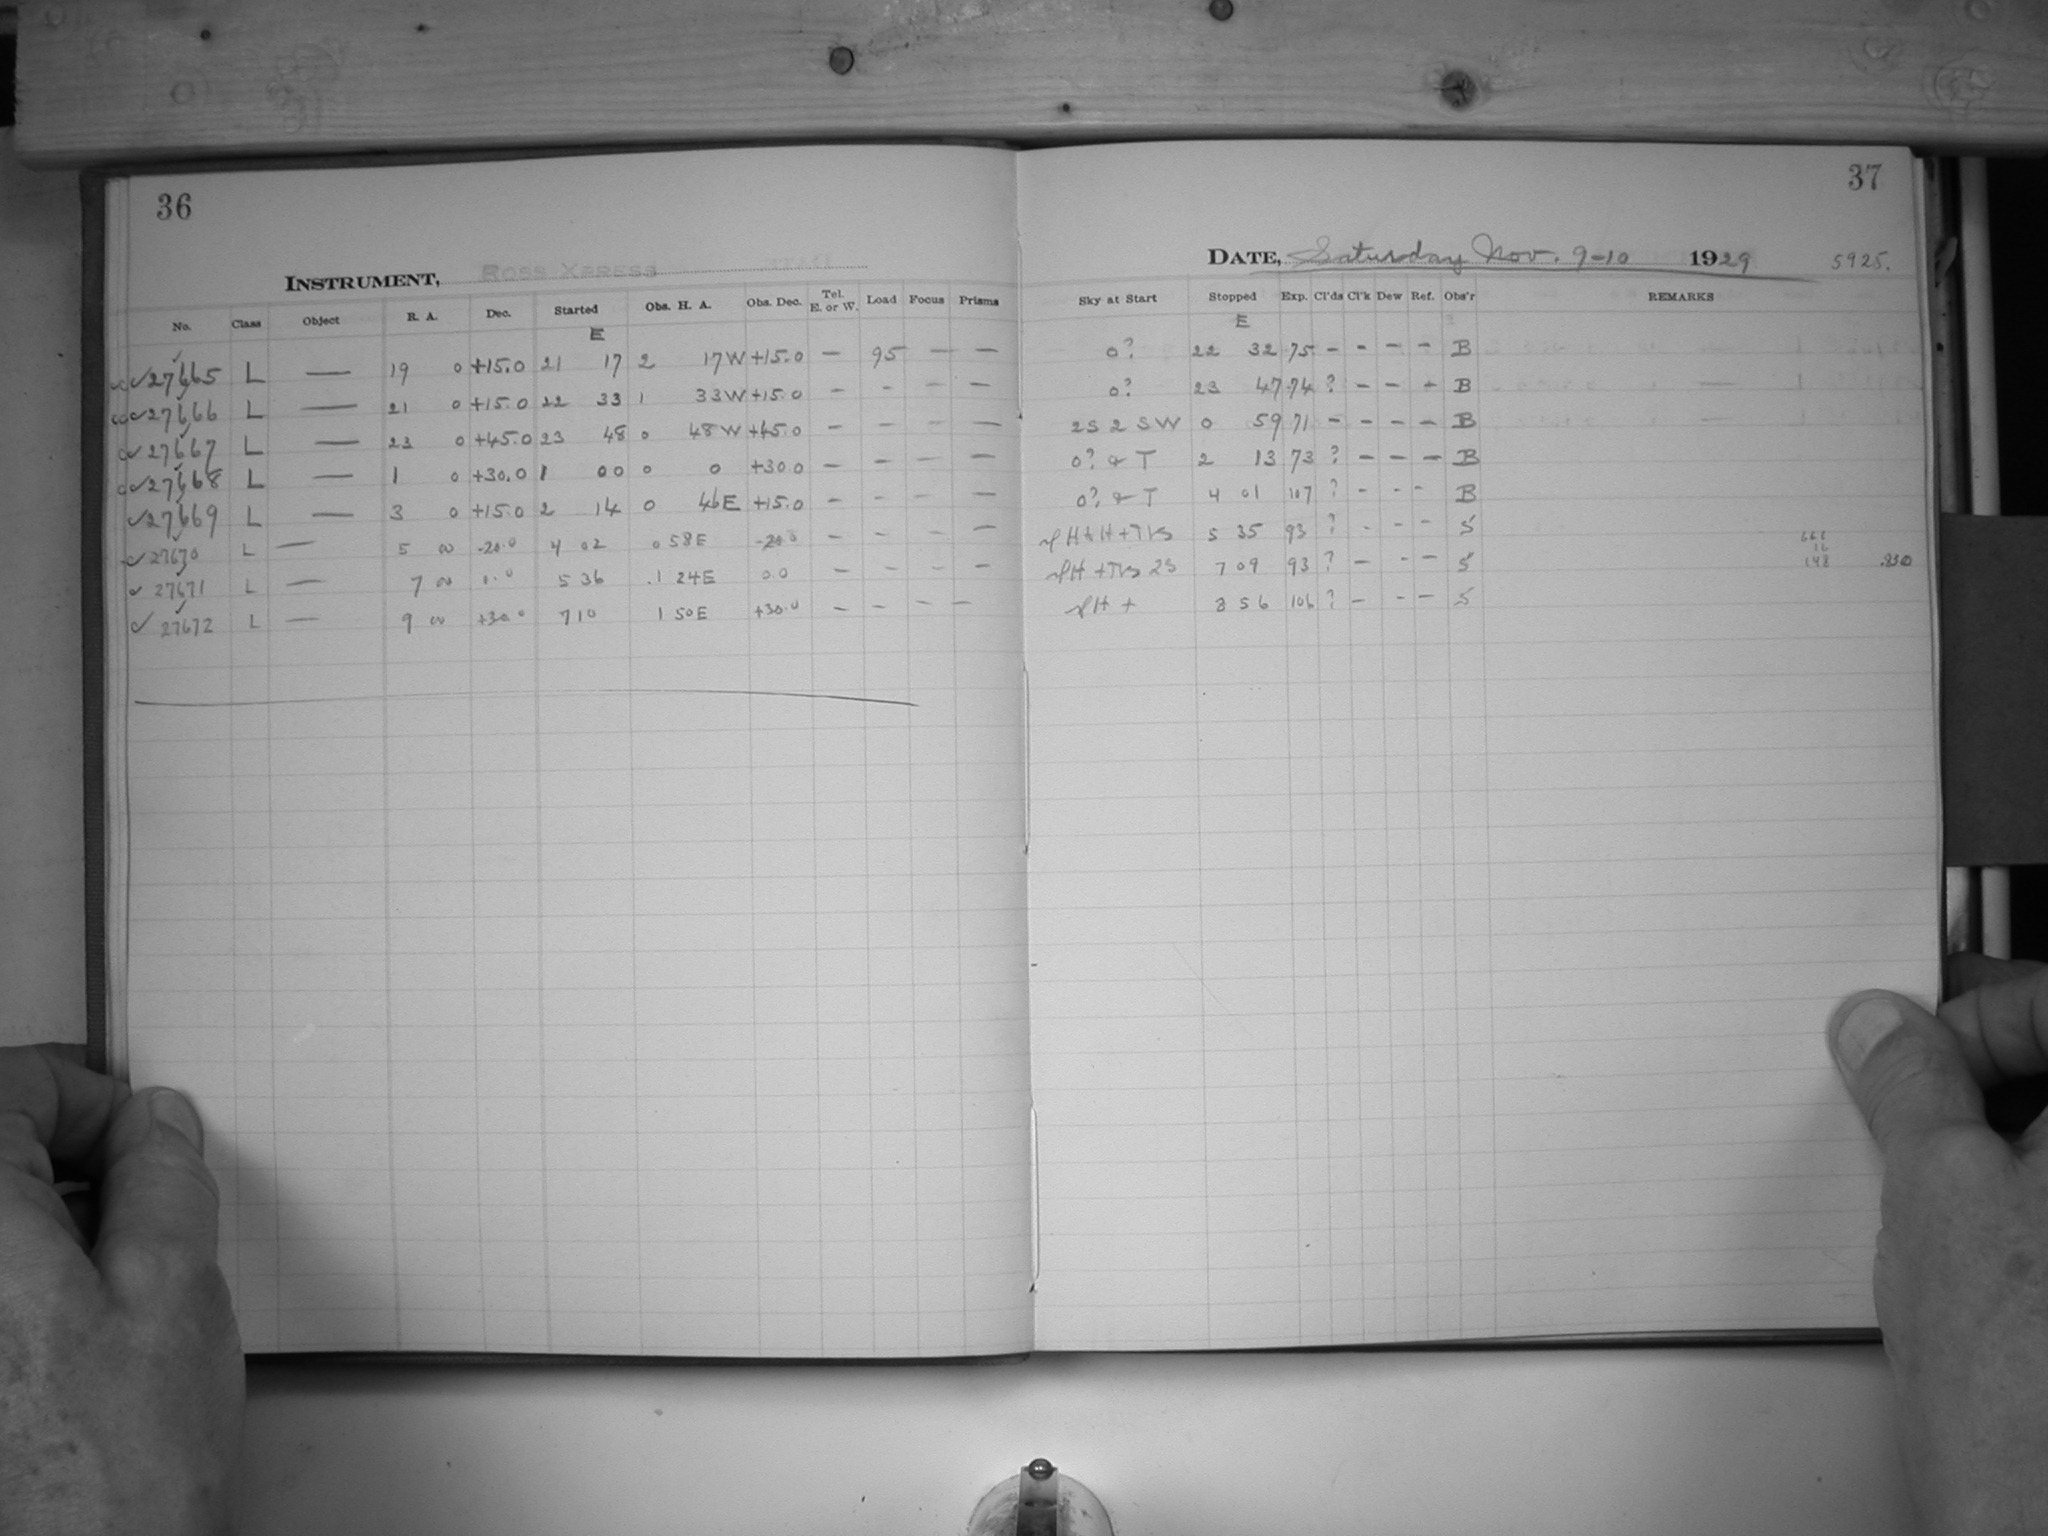 36
INSTRUMENT, ROSS XPRESS
No. Class Object R. A. Dec. Started Obs. H. A. Obs. Dec. Tel. E. or W. Load Focus Prisms
E
27665 L — 19 0 +15.0 21 17 2 17W +15.0 — 95 — —
27666 L — 21 0 +15.0 22 33 1 33W +15.0 — - - —
27667 L — 23 0 +45.0 23 48 0 48W +45.0 — - - —
27668 L — 1 0 +30.0 1 00 0 0 +30.0 — - - —
27669 L — 3 0 +15.0 2 14 0 46E +15.0 — - - —
27670 L — 5 00 -20.0 4 02 0 58E -20.0 — - - —
27671 L — 7 00 0.0 5 36 1 24E 0.0 — - - —
27672 L — 9 00 +30.0 7 10 1 50E +30.0 — - - —
37
DATE, Saturday Nov. 9-10 1929 5925.
Sky at Start Stopped Exp. Cl'ds Cl'k Dew Ref. Obs'r REMARKS
E
0? 22 32 75 - - - - B
0? 23 47 74 ? - - - B
2S 2 SW 0 59 71 - - - - B
0? & T 2 13 73 ? - - - B
0? & T 4 01 107 ? - - - B
5 35 93 ? - - - S
7 09 93 ? - - - S
8 56 106 ? - - - S
666
16
148 .830